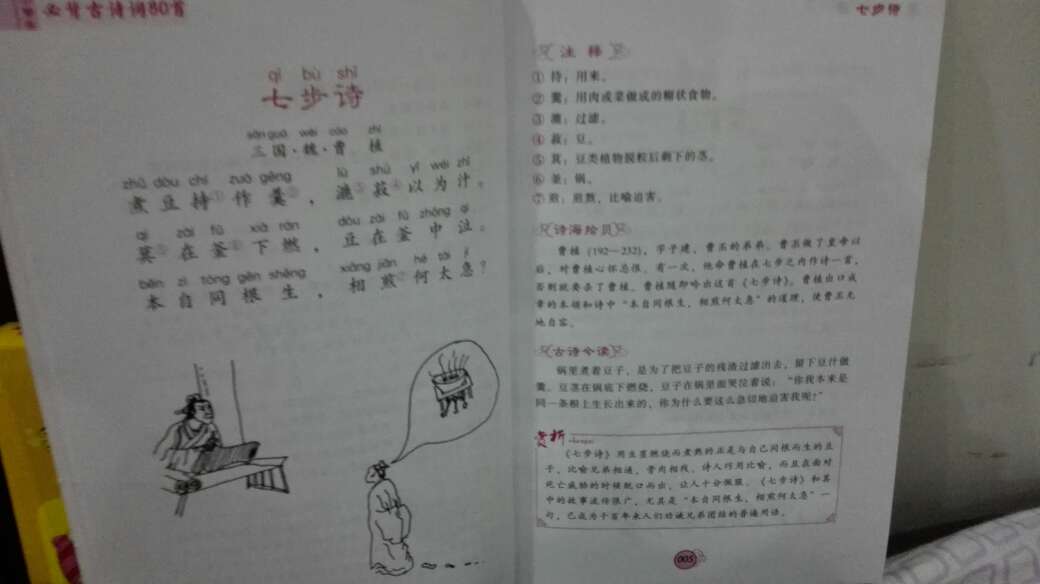 必背古诗词80首
qī bù shī
七步诗
sān guó wèi cáo zhí
三国·魏·曹植
zhǔ dòu chí zuò gēng lù shū yǐ wéi zhī
煮豆持①作羹②，漉③菽④以为汁。
qí zài fǔ xià rán dòu zài fǔ zhōng qì
萁⑤在釜⑥下燃，豆在釜中泣。
běn zì tóng gēn shēng xiāng jiān hé tài jí
本自同根生，相煎⑦何太急？
七步诗
注释
① 持：用来。
② 羹：用肉或菜做成的糊状食物。
③ 漉：过滤。
④ 菽：豆。
⑤ 萁：豆类植物脱粒后剩下的茎。
⑥ 釜：锅。
⑦ 煎：煎熬，比喻迫害。
诗海拾贝
曹植（192—232），字子建，曹丕的弟弟。曹丕做了皇帝以
后，对曹植心怀忌恨。有一次，他命曹植在七步之内作诗一首，
否则就要杀了曹植。曹植随即吟出这首《七步诗》。曹植出口成
章的本领和诗中“本自同根生，相煎何太急”的道理，使曹丕无
地自容。
古诗今读
锅里煮着豆子，是为了把豆子的残渣过滤出去，留下豆汁做
羹。豆茎在锅底下燃烧，豆子在锅里面哭泣着说：“你我本来是
同一条根上生长出来的，你为什么要这么急切地迫害我呢？”
赏析
《七步诗》用豆萁燃烧而煮熟的正是与自己同根而生的豆
子，比喻兄弟相逼、骨肉相残。诗人巧用比喻，而且在面对
死亡威胁的时候脱口而出，让人十分佩服。《七步诗》和其
中的故事流传很广，尤其是“本自同根生，相煎何太急”一
句，已成为千百年来人们劝诫兄弟团结的普遍用语。
005